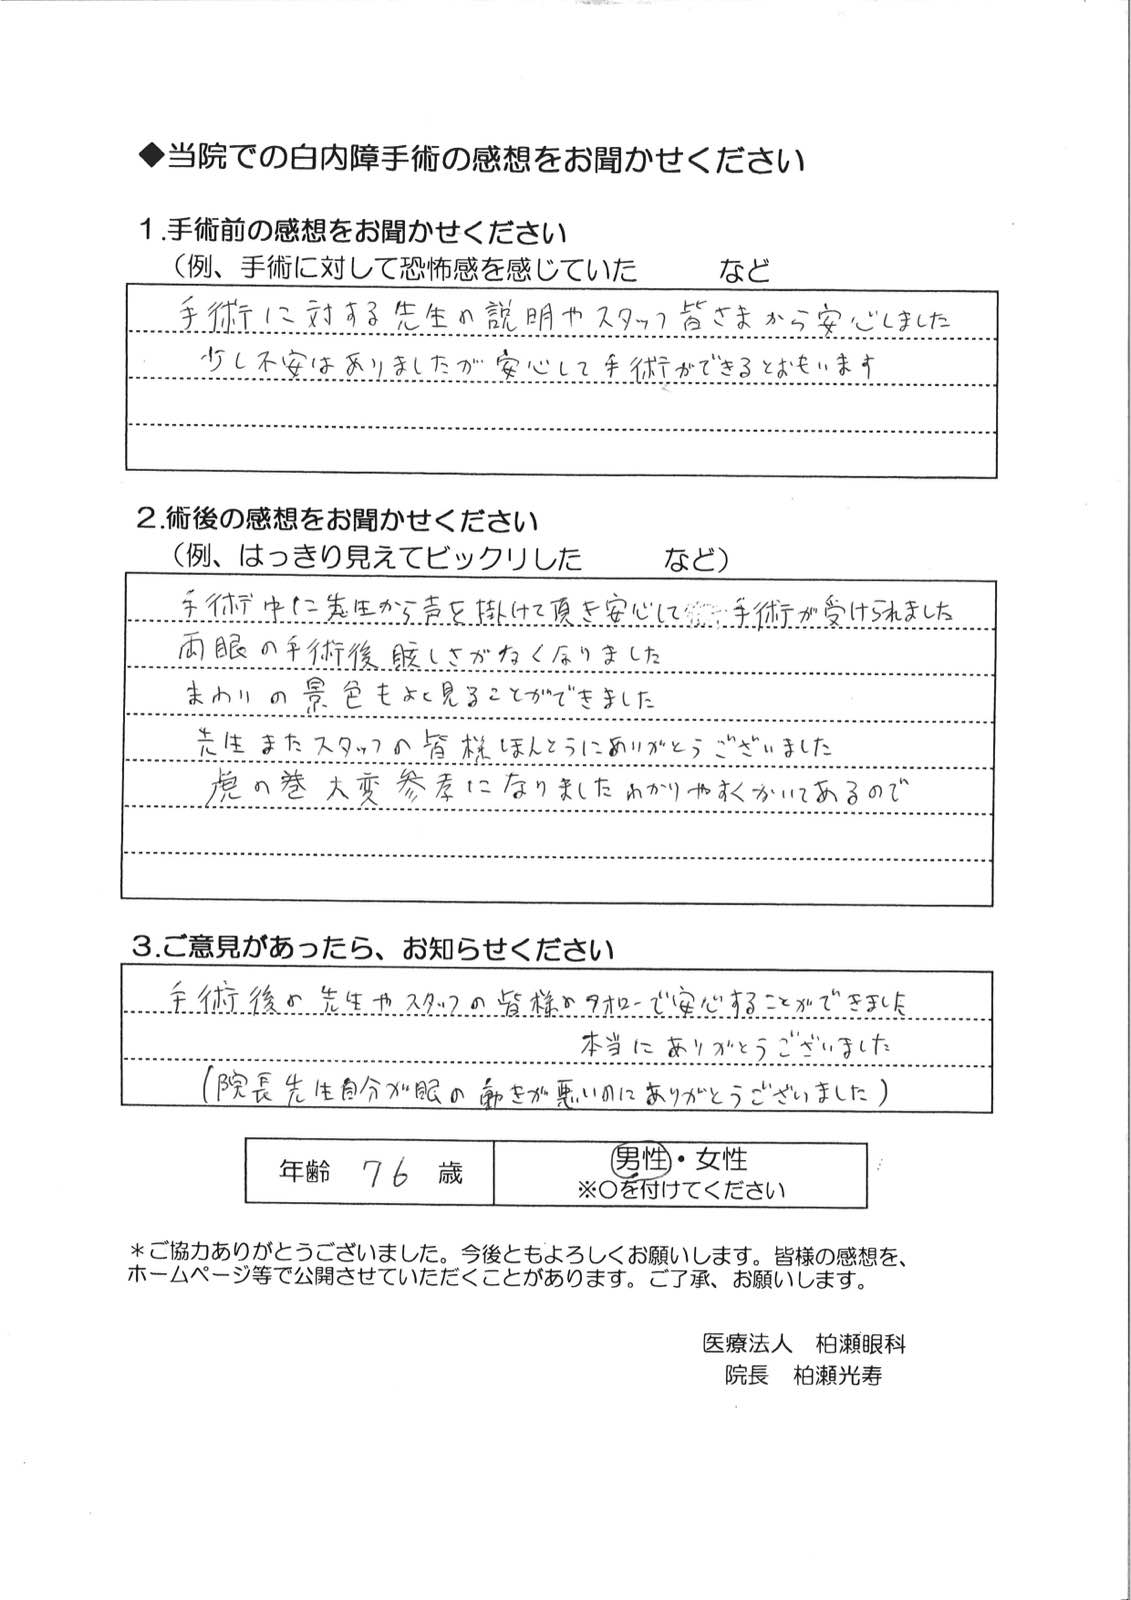 ◆当院での白内障手術の感想をお聞かせください
1.手術前の感想をお聞かせください
（例、手術に対して恐怖感を感じていた　　　など
手術に対する先生の説明やスタッフ皆さまから安心しました
少し不安はありましたが安心して手術ができるとおもいます
2.術後の感想をお聞かせください
（例、はっきり見えてビックリした　　　など）
手術中に先生から声を掛けて頂き安心して手術が受けられました
両眼の手術後眩しさがなくなりました
まわりの景色もよく見ることができました
先生またスタッフの皆様ほんとうにありがとうございました
虎の巻大変参考になりましたわかりやすくかいてあるので
3.ご意見があったら、お知らせください
手術後の先生やスタッフの皆様のフォローで安心することができました
本当にありがとうございました
(院長先生自分が眼の動きが悪いのにありがとうございました)
年齢 76 歳
男性・女性
※○を付けてください
＊ご協力ありがとうございました。今後ともよろしくお願いします。皆様の感想を、
ホームページ等で公開させていただくことがあります。ご了承、お願いします。
医療法人　柏瀬眼科
院長　柏瀬光寿